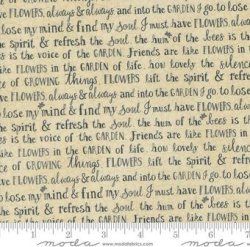 always & always and into the GARDEN I go. to lose
lose my mind & find my soul. I must have FLOWERS, al
the Spirit & refresh the Soul. the hum of the bees is t
s is the voice of the GARDEN. friends are like FLOWERS in
ike FLOWERS in the GARDEN of life. how lovely the silenc
ce of GROWING things. FLOWERS lift the spirit & refres
FLOWERS, always & always and into the GARDEN I go. to lo
o lose my mind & find my soul. I must have FLOWERS,
spirit & refresh the Soul. the hum of the bees is t
is the voice of the GARDEN. friends are like FLOWERS
like FLOWERS in the GARDEN of life. how lovely the silen
ce of GROWING things. FLOWERS lift the spirit & refresh
FLOWERS, always & always and into the GARDEN I go. to los
lose my mind & find my soul. I must have FLOWERS, al
the spirit & refresh the Soul. the hum of the bees is t
is the voice of the GARDEN. friends are like FLOWERS in
moda
www.modafabrics.com
moda